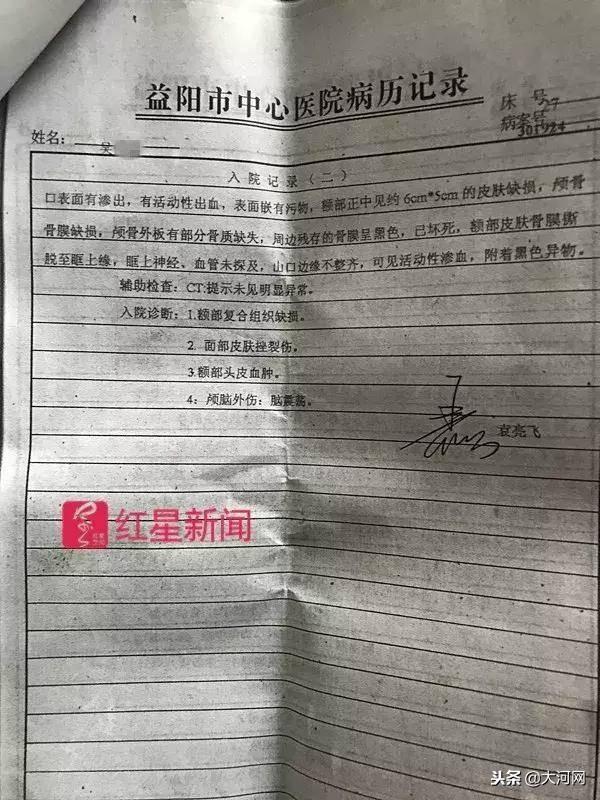 益阳市中心医院病历记录
床 号 27
病案号 301924
姓名：吴
入 院 记 录（二）
口表面有渗出，有活动性出血，表面嵌有污物，额部正中见约 6cm*5cm 的皮肤缺损，颅骨
骨膜缺损，颅骨外板有部分骨质缺失，周边残存的骨膜呈黑色，已坏死，额部皮肤骨膜撕
脱至眶上缘，眶上神经、血管未探及，山口边缘不整齐，可见活动性渗血，附着黑色异物。
辅助检查：CT:提示未见明显异常。
入院诊断：1.额部复合组织缺损。
2. 面部皮肤挫裂伤。
3.额部头皮血肿。
4：颅脑外伤：脑震荡。
袁亮飞
红星新闻
头条 @大河网